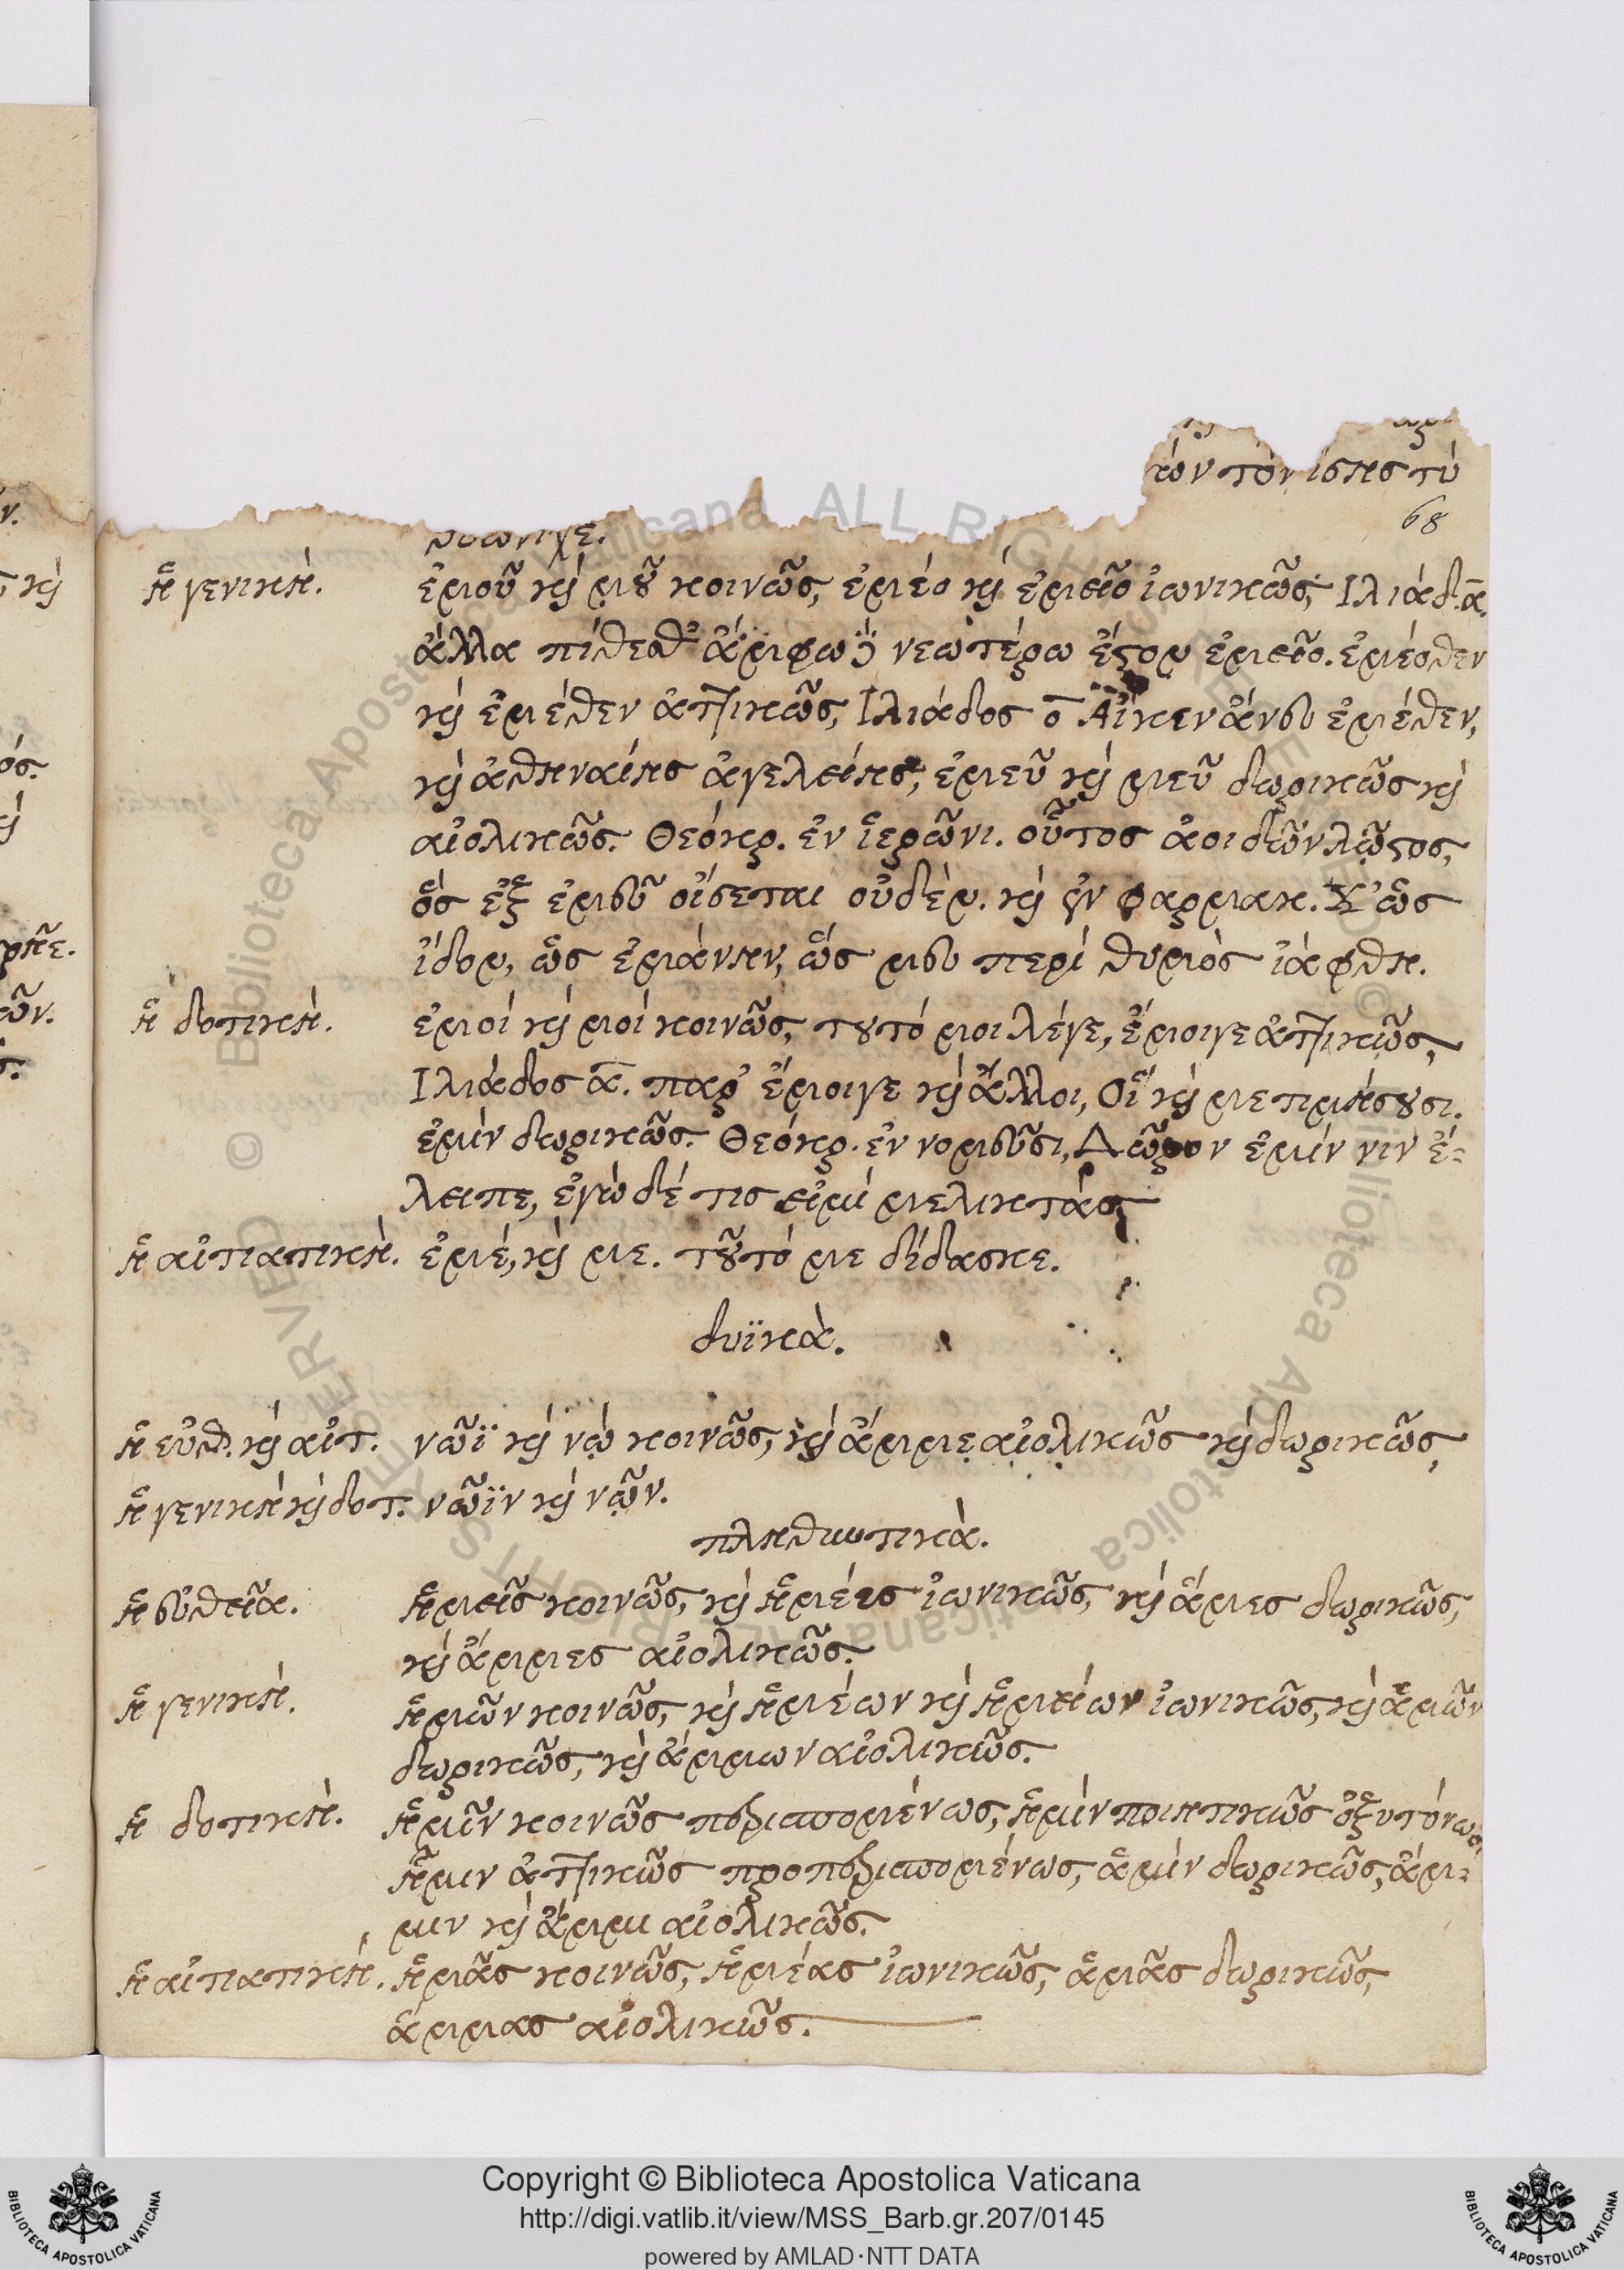 τόν τὸν ἴσης τύ
68
ἡ γενική. ἐμοῦ καὶ μοῦ κοινῶς, ἐμέο καὶ ἐμεῖο ἰωνικῶς, Ιλιάδ. ᾱ.
ἀλλα πίθεσθ' ἄμφω νεωτέρω ἐστον ἐμεῖο. ἐμέοθεν
καὶ ἐμέθεν ἀττικῶς, Ιλιάδος ο̄ Αἴκεν ἄνευ ἐμέθεν,
καὶ ἀθηναίης ἀγελείης, ἐμεῦ καὶ μεῦ δωρικῶς καὶ
αἰολικῶς. Θεόκρ. ἐν ἱερῶνι. οὗτος ἀοιδῶν λῷστος,
ὅς ἐξ ἐμεῦ οἴσεται οὐδέν. καὶ ἐν φαρμακ. Χ' ὡς
ἴδον, ὡς ἐμάνην, ὥς μευ περί θυμὸς ἰάφθη.
ἡ δοτική. ἐμοί καὶ μοί κοινῶς, τουτό μοι λέγε, ἔμοιγε ἀττικῶς,
Ιλιάδος ᾱ. παρ' ἔμοιγε καὶ ἄλλοι, Οἵ καὶ με τιμήσουσι.
ἐμίν δωρικῶς. Θεόκρ. ἐν νομεῦσι, Δῶρον ἐμίν νιν ἔ-
λειπε, ἐγώ δέ τις εἰμί μελικτάς,
ἡ αἰτιατική. ἐμέ, καὶ με. τοῦτό με δίδασκε.
δυϊκά.
ἡ εὐθ. καὶ αἰτ. νῶϊ καὶ νῴ κοινῶς, καὶ ἄμμε αἰολικῶς καὶ δωρικῶς,
ἡ γενική καὶ δοτ. νῶϊν καὶ νῷν.
πληθυντικά.
ἡ εὐθεῖα. ἡμεῖς κοινῶς, καὶ ἡμέες ἰωνικῶς, καὶ ἅμες δωρικῶς,
καὶ ἄμμες αἰολικῶς.
ἡ γενική. ἡμῶν κοινῶς, καὶ ἡμέων καὶ ἡμείων ἰωνικῶς, καὶ ἁμῶν
δωρικῶς, καὶ ἄμμων αἰολικῶς.
ἡ δοτική. ἡμῖν κοινῶς περισπομένως, ἡμίν ποιητικῶς ὀξυτόνως,
ἧμιν ἀττικῶς προπερισπομένως, ἁμίν δωρικῶς, ἄμ-
μιν καὶ ἄμμι αἰολικῶς.
ἡ αἰτιατική. ἡμᾶς κοινῶς, ἡμέας ἰωνικῶς, ἁμᾶς δωρικῶς,
ἄμμας αἰολικῶς.
Copyright © Biblioteca Apostolica Vaticana
http://digi.vatlib.it/view/MSS_Barb.gr.207/0145
powered by AMLAD·NTT DATA